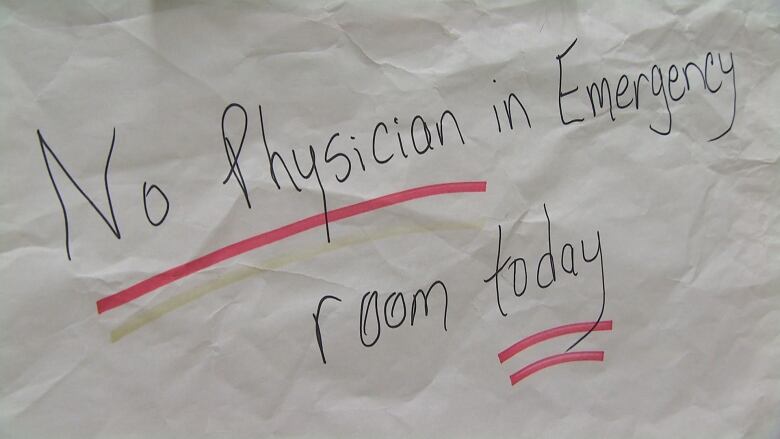 No Physician in Emergency
room today